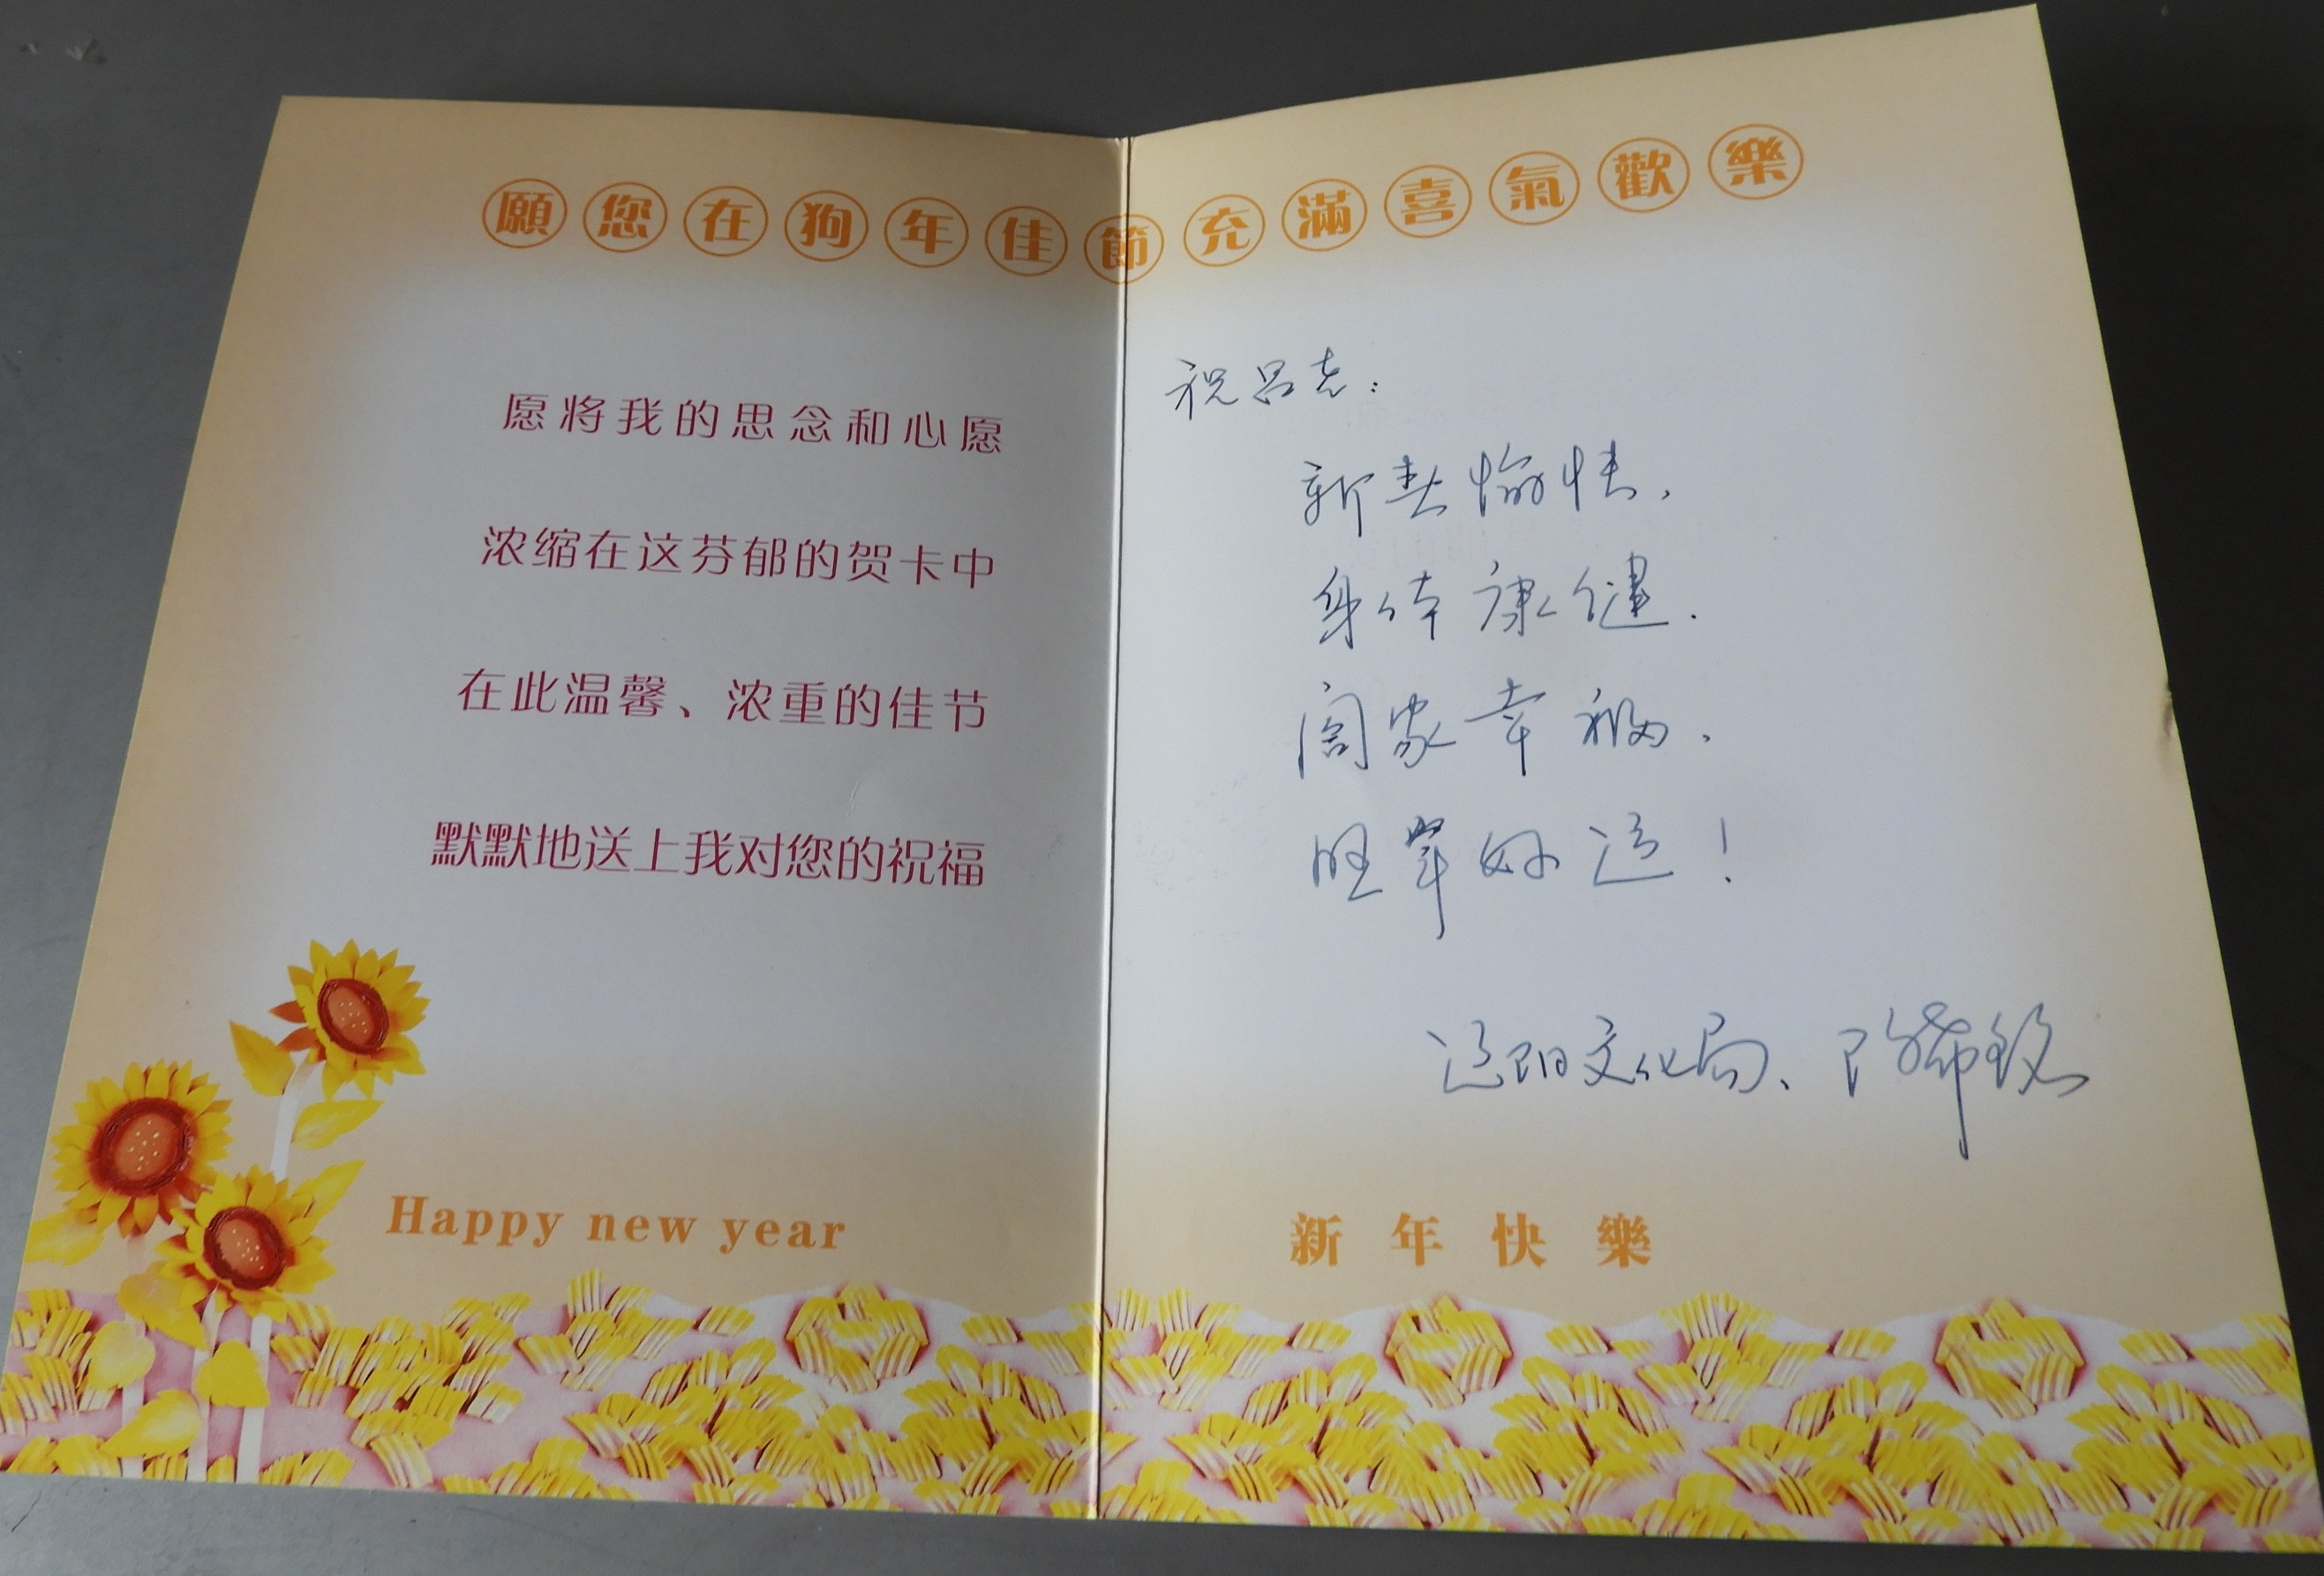 願您在狗年佳節充滿喜氣歡樂
愿将我的思念和心愿
浓缩在这芬郁的贺卡中
在此温馨、浓重的佳节
默默地送上我对您的祝福
Happy new year
祝吕老：
新春愉快，
身体康健．
阖家幸福．
旺年好运！
辽阳文化局、
新年快樂